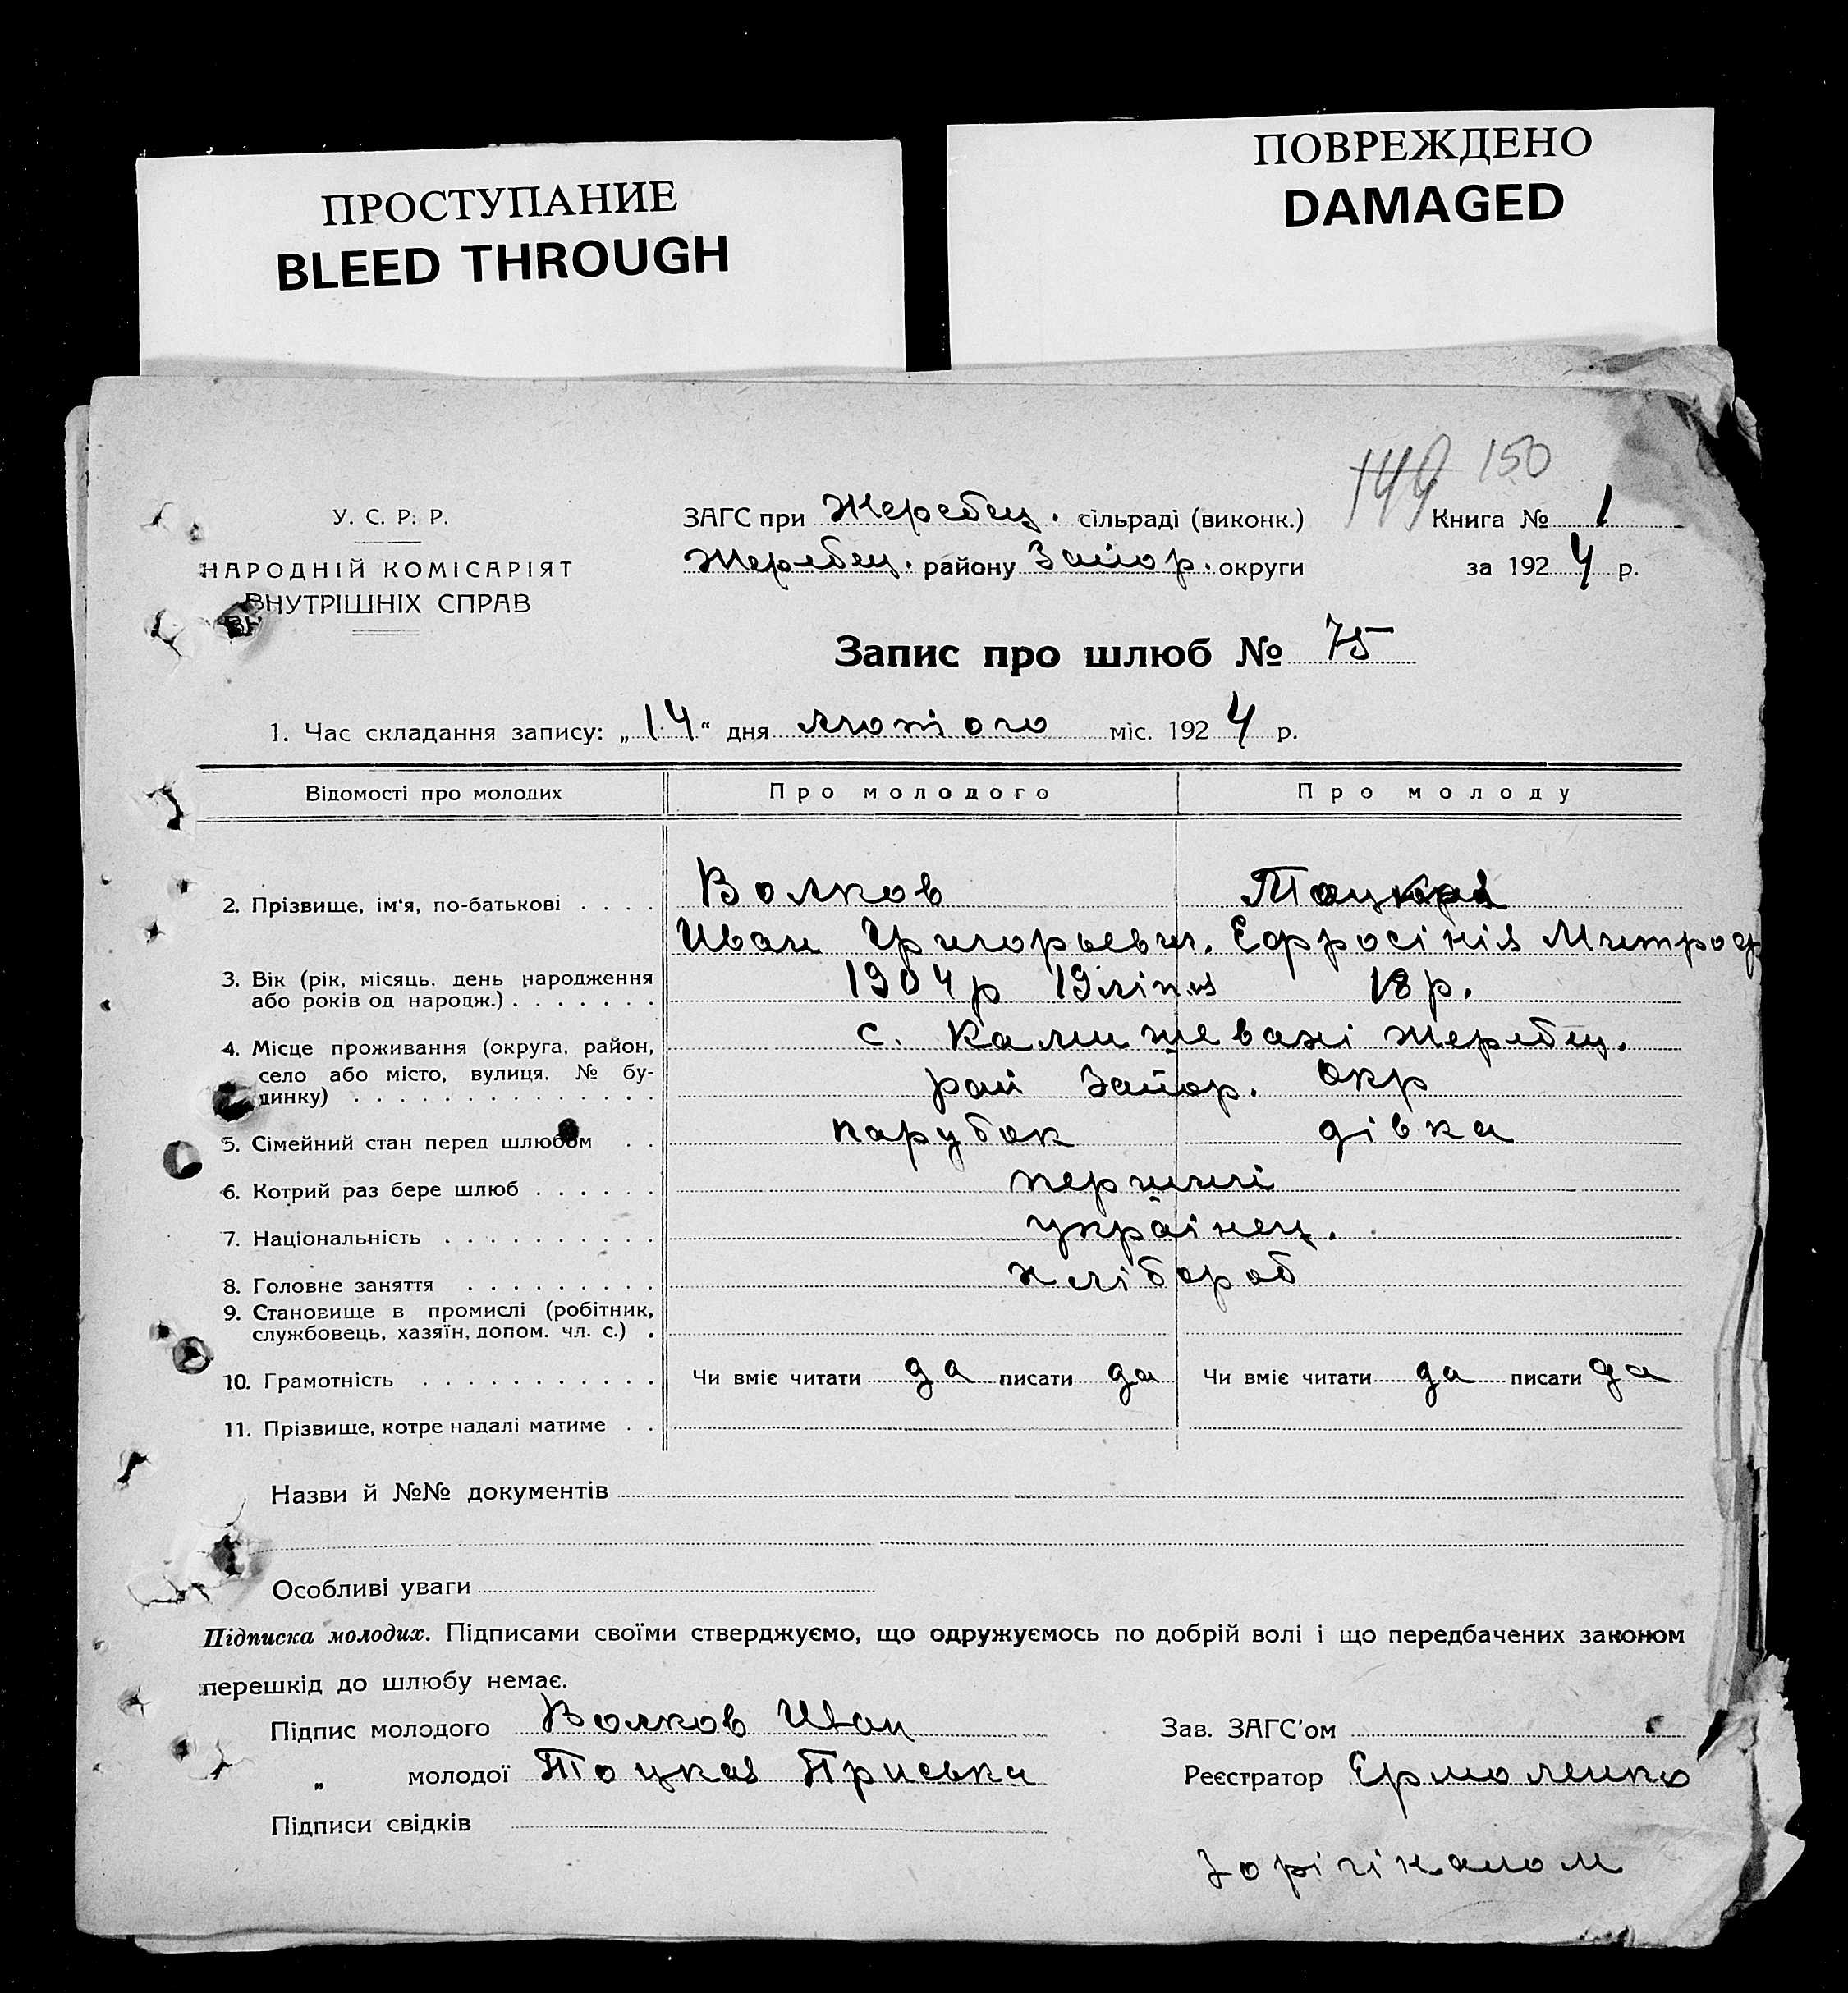 ПРОСТУПАНИЕ
BLEED THROUGH
ПОВРЕЖДЕНО
DAMAGED
149 150
У. С. Р. Р.
НАРОДНІЙ КОМІСАРІЯТ
ВНУТРІШНІХ СПРАВ
ЗАГС при Жеребец. сільраді (виконк.)
Жеребец. району Запор. округи
Книга № 1
за 1924 р.
Запис про шлюб № 75
1. Час складання запису: „14“ дня лютого міс. 1924 р.
Відомості про молодих Про молодого Про молоду
2. Прізвище, ім‘я, по-батькові . . . . Волков Тоцкая
Иван Григорьевич. Ефросінія Митроф
3. Вік (рік, місяць, день народження
або років од народж.) . . . . . . . 1904р 19 ліпня 18 р.
4. Місце проживання (округа, район, с. Камишевахі Жеребец.
село або місто, вулиця, № бу-
динку) . . . . . . . . . . . . . . рай Запор. Окр
5. Сімейний стан перед шлюбом . . парубок дівка
6. Котрий раз бере шлюб . . . . . . перший
7. Національність . . . . . . . . . . українец.
8. Головне заняття . . . . . . . . . хлібороб
9. Становище в промислі (робітник,
службовець, хазяїн, допом. чл. с.) .
10. Грамотність . . . . . . . . . . . Чи вміє читати да писати да Чи вміє читати да писати да
11. Прізвище, котре надалі матиме . .
Назви й №№ документів
Особливі уваги
Підписка молодих. Підписами своїми стверджуємо, що одружуємось по добрій волі і що передбачених законом
перешкід до шлюбу немає.
Підпис молодого Волков Иван Зав. ЗАГС’ом
„ молодої Тоцкая Приська Реєстратор Ермоленко
Підписи свідків
З орігіналом